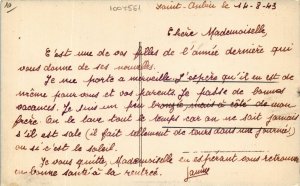 10
1004561
Saint-Aubin le 14-8-43
Chère Mademoiselle,
C'est une de vos filles de l'année dernière qui
vous donne de ses nouvelles.
Je me porte à merveille. J'espère qu'il en est de
même pour vous et vos parents. Je passe de bonnes
vacances. Je suis un peu bronzée mais à côté de mon
frère On le lave tout le temps car on ne sait jamais
s'il est sale (il fait tellement de tours dans une journée)
ou si c'est le soleil.
Je vous quitte, Mademoiselle en espérant vous retrouver
en bonne santé à la rentrée.